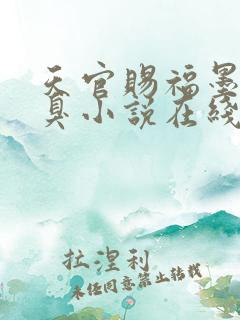 天官赐福墨
臭小说在线
拉涅利
未经同意禁止转载